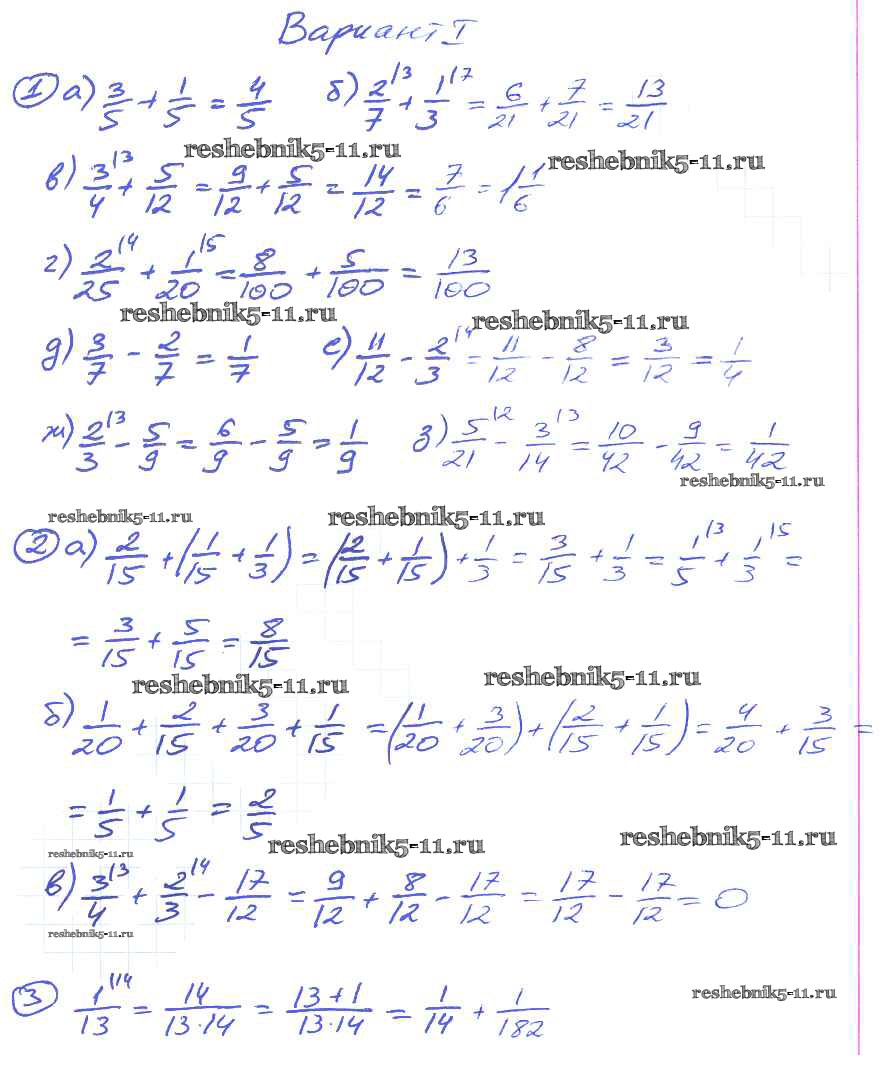 Вариант I
① а) 3/5 + 1/5 = 4/5 б) 2/7 \3 + 1/3 \7 = 6/21 + 7/21 = 13/21
reshebnik5-11.ru
reshebnik5-11.ru
в) 3/4 \3 + 5/12 = 9/12 + 5/12 = 14/12 = 7/6 = 1 1/6
г) 2/25 \4 + 1/20 \5 = 8/100 + 5/100 = 13/100
reshebnik5-11.ru
reshebnik5-11.ru
д) 3/7 - 2/7 = 1/7 е) 11/12 - 2/3 \4 = 11/12 - 8/12 = 3/12 = 1/4
ж) 2/3 \3 - 5/9 = 6/9 - 5/9 = 1/9 з) 5/21 \2 - 3/14 \3 = 10/42 - 9/42 = 1/42
reshebnik5-11.ru
reshebnik5-11.ru
reshebnik5-11.ru
② а) 2/15 + (1/15 + 1/3) = (2/15 + 1/15) + 1/3 = 3/15 + 1/3 = 1/5 \3 + 1/3 \5 =
= 3/15 + 5/15 = 8/15
reshebnik5-11.ru
reshebnik5-11.ru
б) 1/20 + 2/15 + 3/20 + 1/15 = (1/20 + 3/20) + (2/15 + 1/15) = 4/20 + 3/15 =
= 1/5 + 1/5 = 2/5
reshebnik5-11.ru
reshebnik5-11.ru
reshebnik5-11.ru
в) 3/4 \3 + 2/3 \4 - 17/12 = 9/12 + 8/12 - 17/12 = 17/12 - 17/12 = 0
reshebnik5-11.ru
③ 1/13 \14 = 14/13·14 = 13+1/13·14 = 1/14 + 1/182
reshebnik5-11.ru